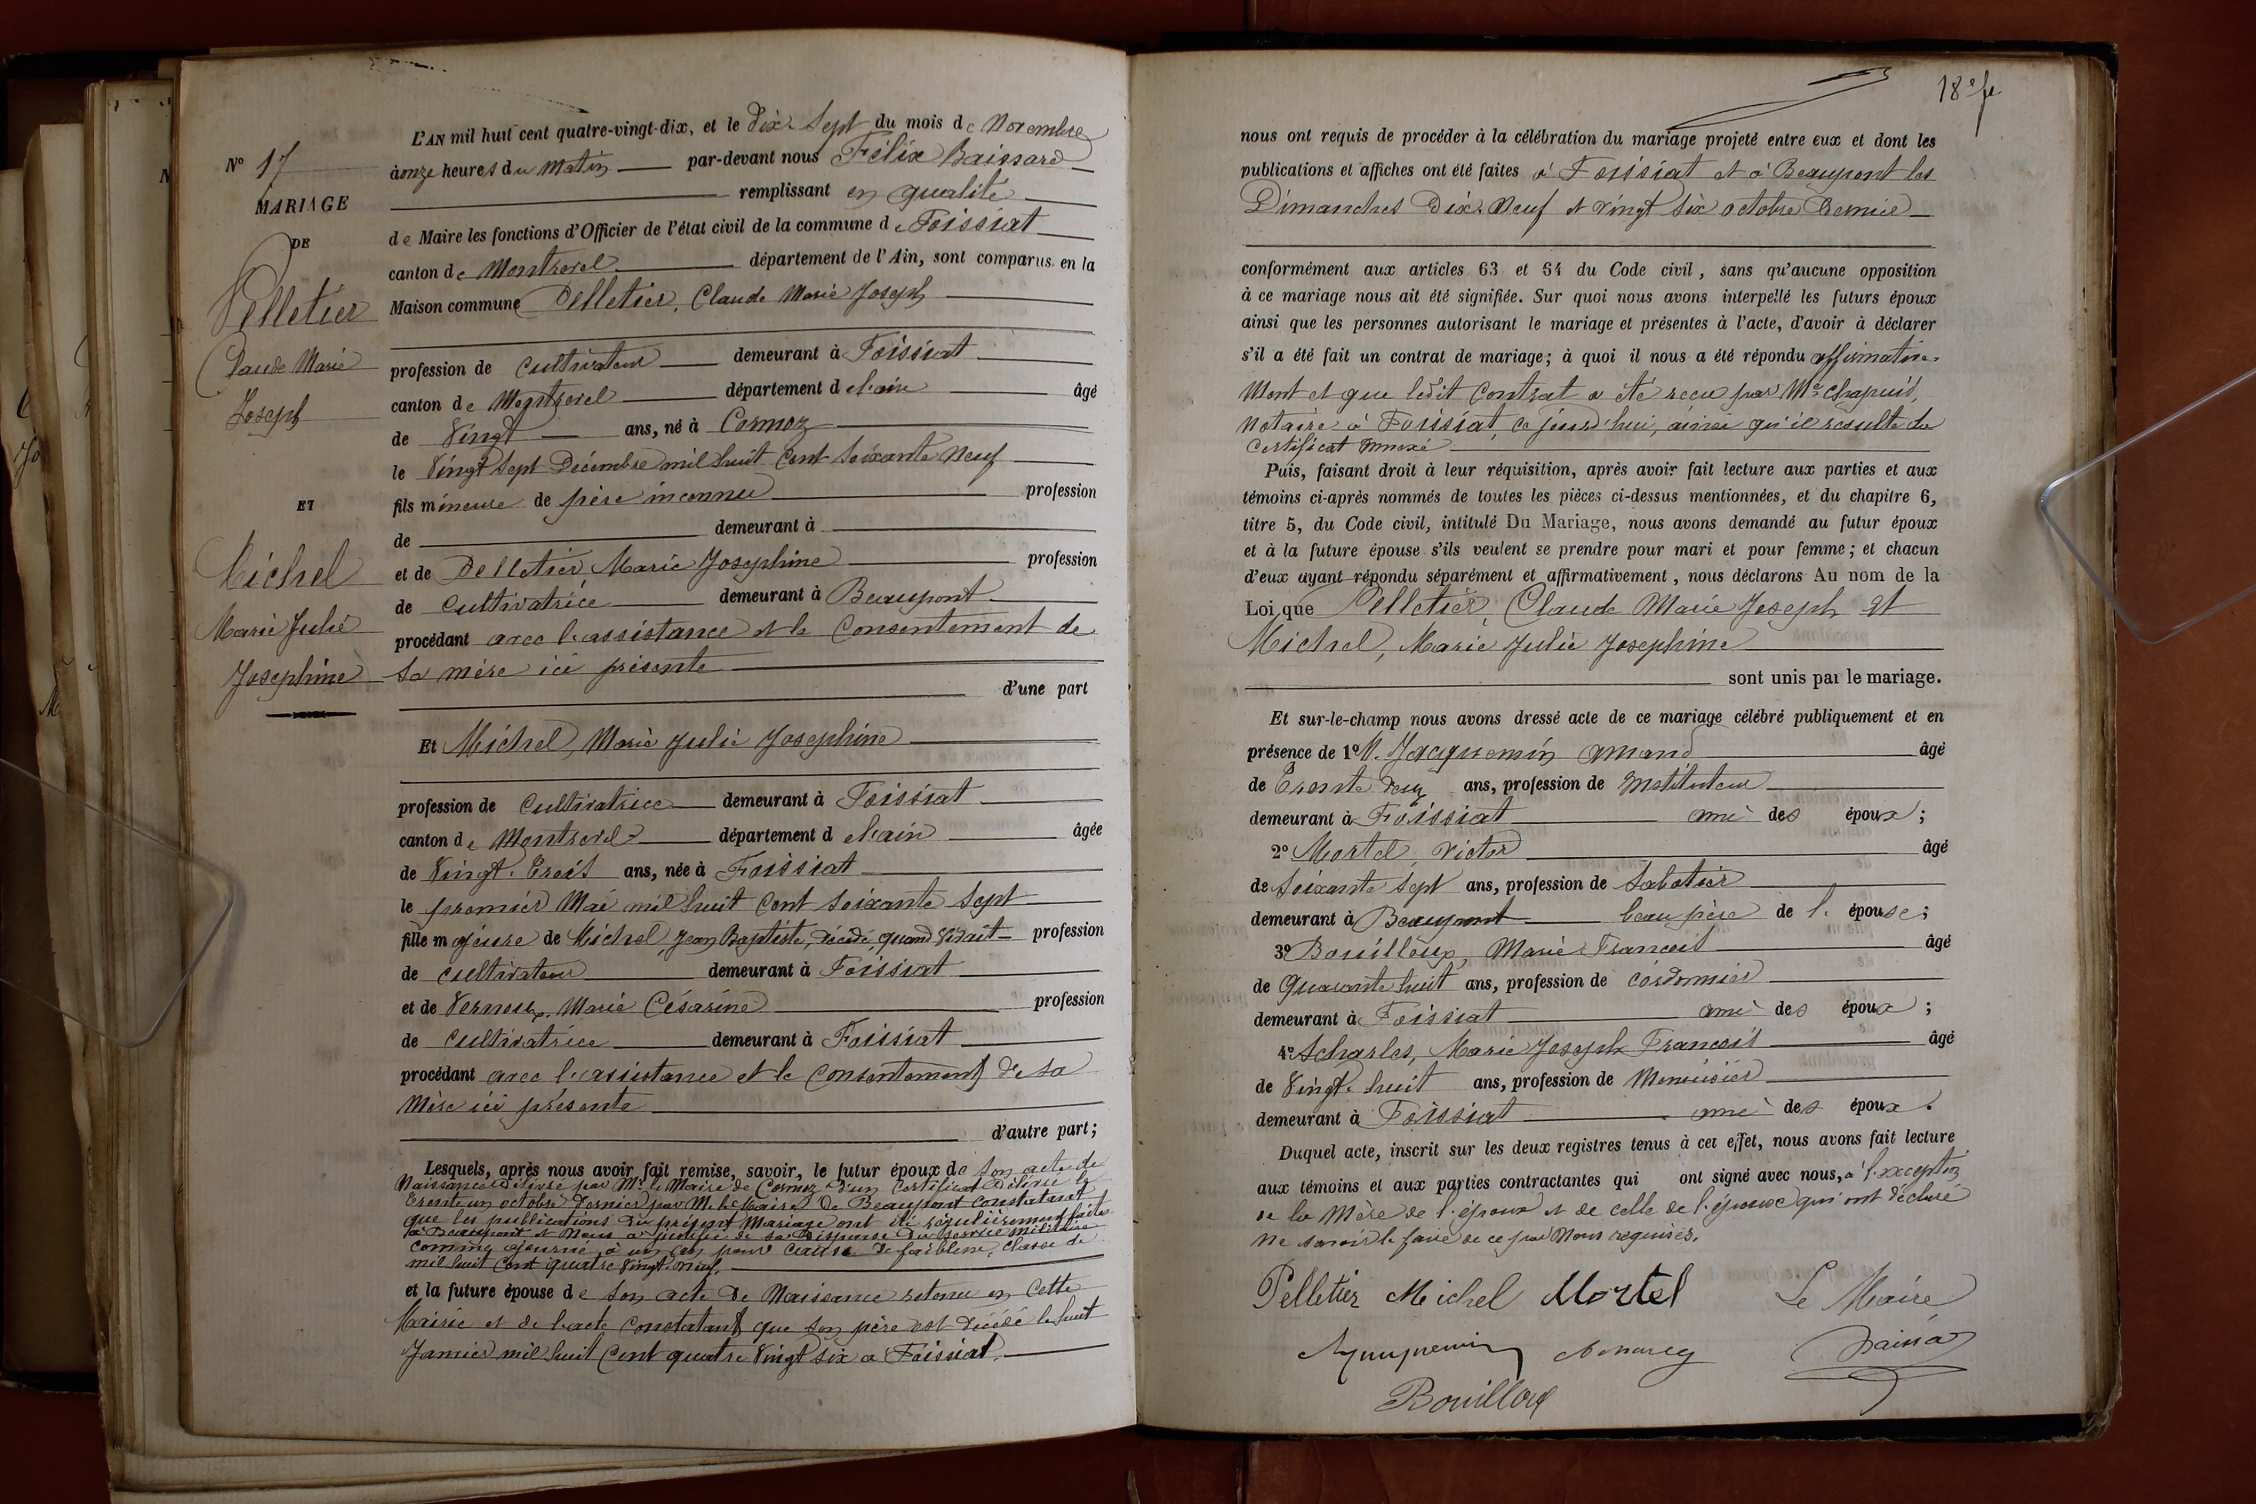 N° 17
MARIAGE
DE
Pelletier
Claude Marie
Joseph
ET
Michel
Marie Julie
Josephine
L'AN mil huit cent quatre-vingt-dix, et le Dix-Sept du mois de Novembre
à onze heures du Matin par-devant nous Félix Baissard
remplissant en qualité
de Maire les fonctions d'Officier de l'état civil de la commune de Foissiat
canton de Montrevel département de l'Ain, sont comparus en la
Maison commune Pelletier, Claude Marie Joseph
profession de Cultivateur demeurant à Foissiat
canton de Montrevel département de l'ain âgé
de Vingt ans, né à Cormoz
le Vingt Sept Décembre mil huit Cent Soixante Neuf
fils mineure de père inconnu profession
de demeurant à
et de Pelletier Marie Josephine profession
de Cultivatrice demeurant à Beaupont
procédant avec l'assistance et le Consentement de
sa mère ici présente
d'une part
Et Michel, Marie Julie Josephine
profession de Cultivatrice demeurant à Foissiat
canton de Montrevel département de l'ain âgée
de Vingt-Trois ans, née à Foissiat
le premier Mai mil huit Cent Soixante Sept
fille majeure de Michel, Jean Baptiste, décédé, quand Vivait profession
de cultivateur demeurant à Foissiat
et de Vernoux, Marie Césarine profession
de Cultivatrice demeurant à Foissiat
procédant avec l'assistance et le Consentement de sa
Mère ici présente
d'autre part;
Lesquels, après nous avoir fait remise, savoir, le futur époux de son acte de
Naissance délivré par Mr le Maire de Cormoz d'un Certificat Délivré le
Trente un octobre Dernier par M. le Maire de Beaupont Constatant
que les publications du présent Mariage ont été régulièrement faites
à Beaupont et Nous a justifié de sa Dispense du Service Militaire
comme ajourné à un an pour Cause de faiblesse, Classe de
mil huit Cent quatre Vingt-neuf.
et la future épouse de son acte de Naissance retenu en Cette
Mairie et de l'acte Constatant que son père est Décédé le huit
Janvier mil huit Cent quatre Vingt Six à Foissiat.
18e fe
nous ont requis de procéder à la célébration du mariage projeté entre eux et dont les
publications et affiches ont été faites à Foissiat et à Beaupont les
Dimanches Dix-Neuf et Vingt Six octobre Dernier
conformément aux articles 63 et 64 du Code civil, sans qu'aucune opposition
à ce mariage nous ait été signifiée. Sur quoi nous avons interpellé les futurs époux
ainsi que les personnes autorisant le mariage et présentes à l'acte, d'avoir à déclarer
s'il a été fait un contrat de mariage; à quoi il nous a été répondu affirmative-
Ment et que ledit Contrat a été reçu par Me Chapuis,
Notaire à Foissiat, ce jourd'hui, ainsi qu'il résulte du
Certificat annexé
Puis, faisant droit à leur réquisition, après avoir fait lecture aux parties et aux
témoins ci-après nommés de toutes les pièces ci-dessus mentionnées, et du chapitre 6,
titre 5, du Code civil, intitulé Du Mariage, nous avons demandé au futur époux
et à la future épouse s'ils veulent se prendre pour mari et pour femme; et chacun
d'eux ayant répondu séparément et affirmativement, nous déclarons Au nom de la
Loi que Pelletier, Claude Marie Joseph et
Michel, Marie Julie Josephine
sont unis par le mariage.
Et sur-le-champ nous avons dressé acte de ce mariage célébré publiquement et en
présence de 1° M. Jacquemin Amand âgé
de Trente Deux ans, profession de Instituteur
demeurant à Foissiat ami des époux;
2° Mortel, Victor âgé
de Soixante Sept ans, profession de Sabotier
demeurant à Beaupont beau père de l'épouse;
3° Bouilloux, Marie François âgé
de Quarante huit ans, profession de Cordonnier
demeurant à Foissiat ami des époux;
4° Acharles, Marie Joseph François âgé
de Vingt-huit ans, profession de Menuisier
demeurant à Foissiat ami des époux.
Duquel acte, inscrit sur les deux registres tenus à cet effet, nous avons fait lecture
aux témoins et aux parties contractantes qui ont signé avec nous, à l'exception
de la Mère de l'époux et de celle de l'épouse qui ont déclaré
Ne savoir le faire de ce par Nous requises.
Pelletier Michel Mortel Le Maire
Bouilloux